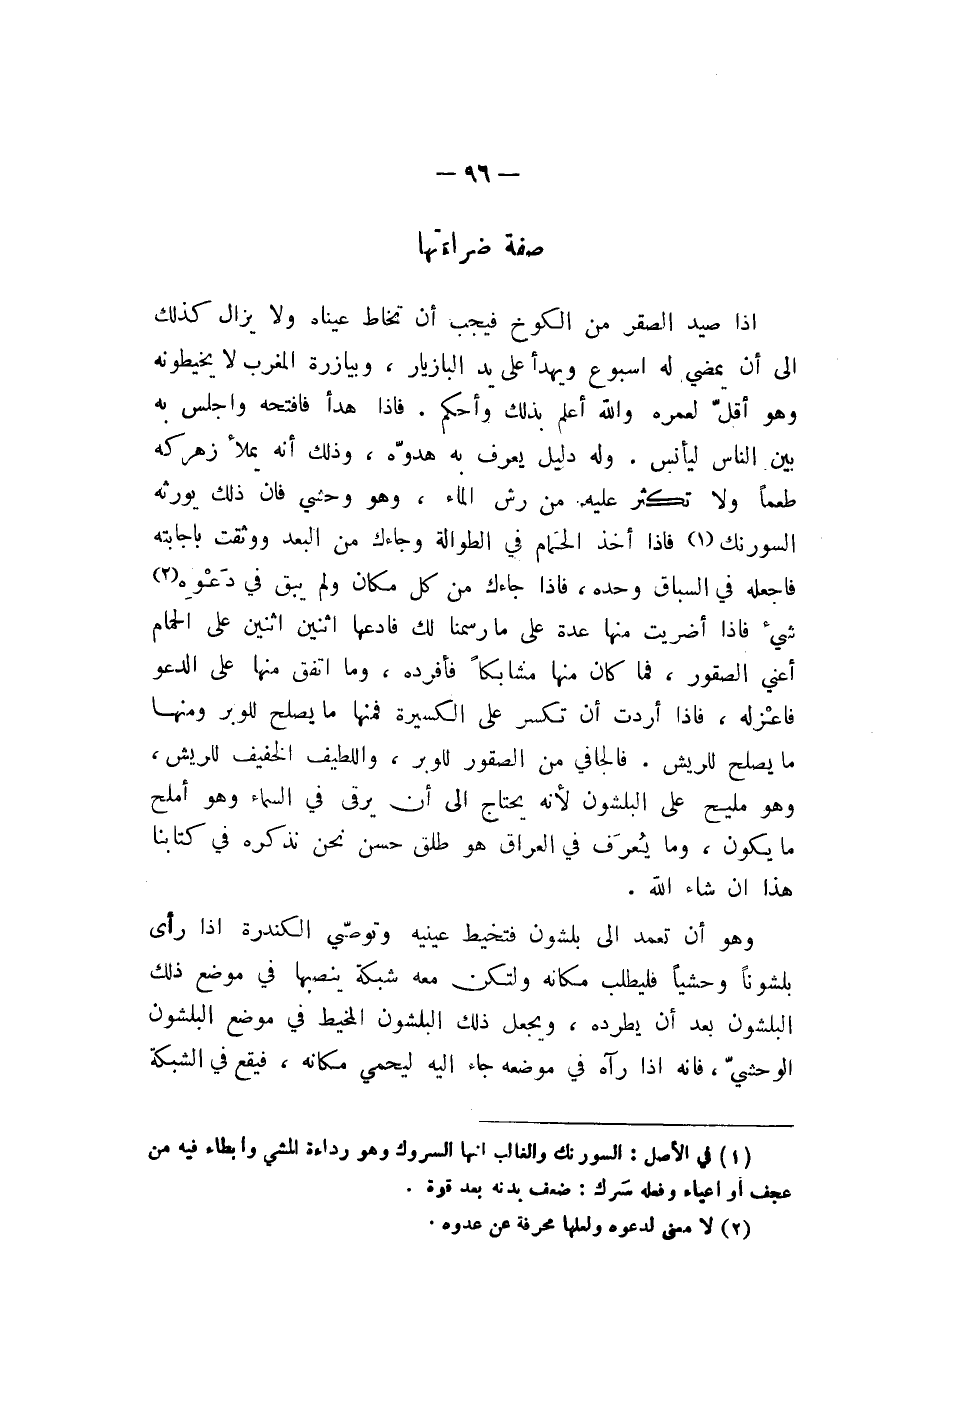 — ٩٦ —
صفة ضراءتها
اذا صيد الصقر من الكوخ فيجب أن تخاط عيناه ولا يزال كذلك
الى أن يمضي له اسبوع ويهدأ على يد البازيار ، وبيازرة المغرب لا يخيطونه
وهو أقلّ لعمره والله أعلم بذلك وأحكم . فاذا هدأ فافتحه واجلس به
بين الناس ليأنس . وله دليل يعرف به هدوّه ، وذلك أنه يملأ زهركه
طعماً ولا تكثر عليه من رش الماء ، وهو وحشي فان ذلك يورثه
السورنك (١) فاذا أخذ الحمَام في الطوالة وجاءك من البعد ووثقت باجابته
فاجعله في السباق وحده ، فاذا جاءك من كل مكان ولم يبق في دَعْوِه (٢)
شيء فاذا أضريت منها عدة على ما رسمنا لك فادعها اثنين اثنين على الحمام
أعني الصقور ، فما كان منها مشابكاً فأفرده ، وما اتفق منها على الدعو
فاعْزله ، فاذا أردت أن تكسر على الكسيرة فمنها ما يصلح للوبر ومنهـا
ما يصلح للريش . فالجافي من الصقور للوبر ، واللطيف الخفيف للريش ،
وهو مليح على البلشون لأنه يحتاج الى أن يرقى في السماء وهو أملح
ما يكون ، وما يُعرَف في العراق هو طلق حسن نحن نذكره في كتابنا
هذا ان شاء الله .
وهو أن تعمد الى بلشون فتخيط عينيه وتوصّي الكندرة اذا رأى
بلشوناً وحشياً فليطلب مكانه ولتكن معه شبكة ينصبها في موضع ذلك
البلشون بعد أن يطرده ، ويجعل ذلك البلشون المخيط في موضع البلشون
الوحشيّ ، فانه اذا رآه في موضعه جاء اليه ليحمي مكانه ، فيقع في الشبكة
(١) في الأصل : السورنك والغالب انها السروك وهو رداءة المشي وأبطاء فيه من
عجف أو اعياء وفعله سَرك : ضعف بدنه بعد قوة .
(٢) لا معنى لدعوه ولعلها محرفة عن عدوه .